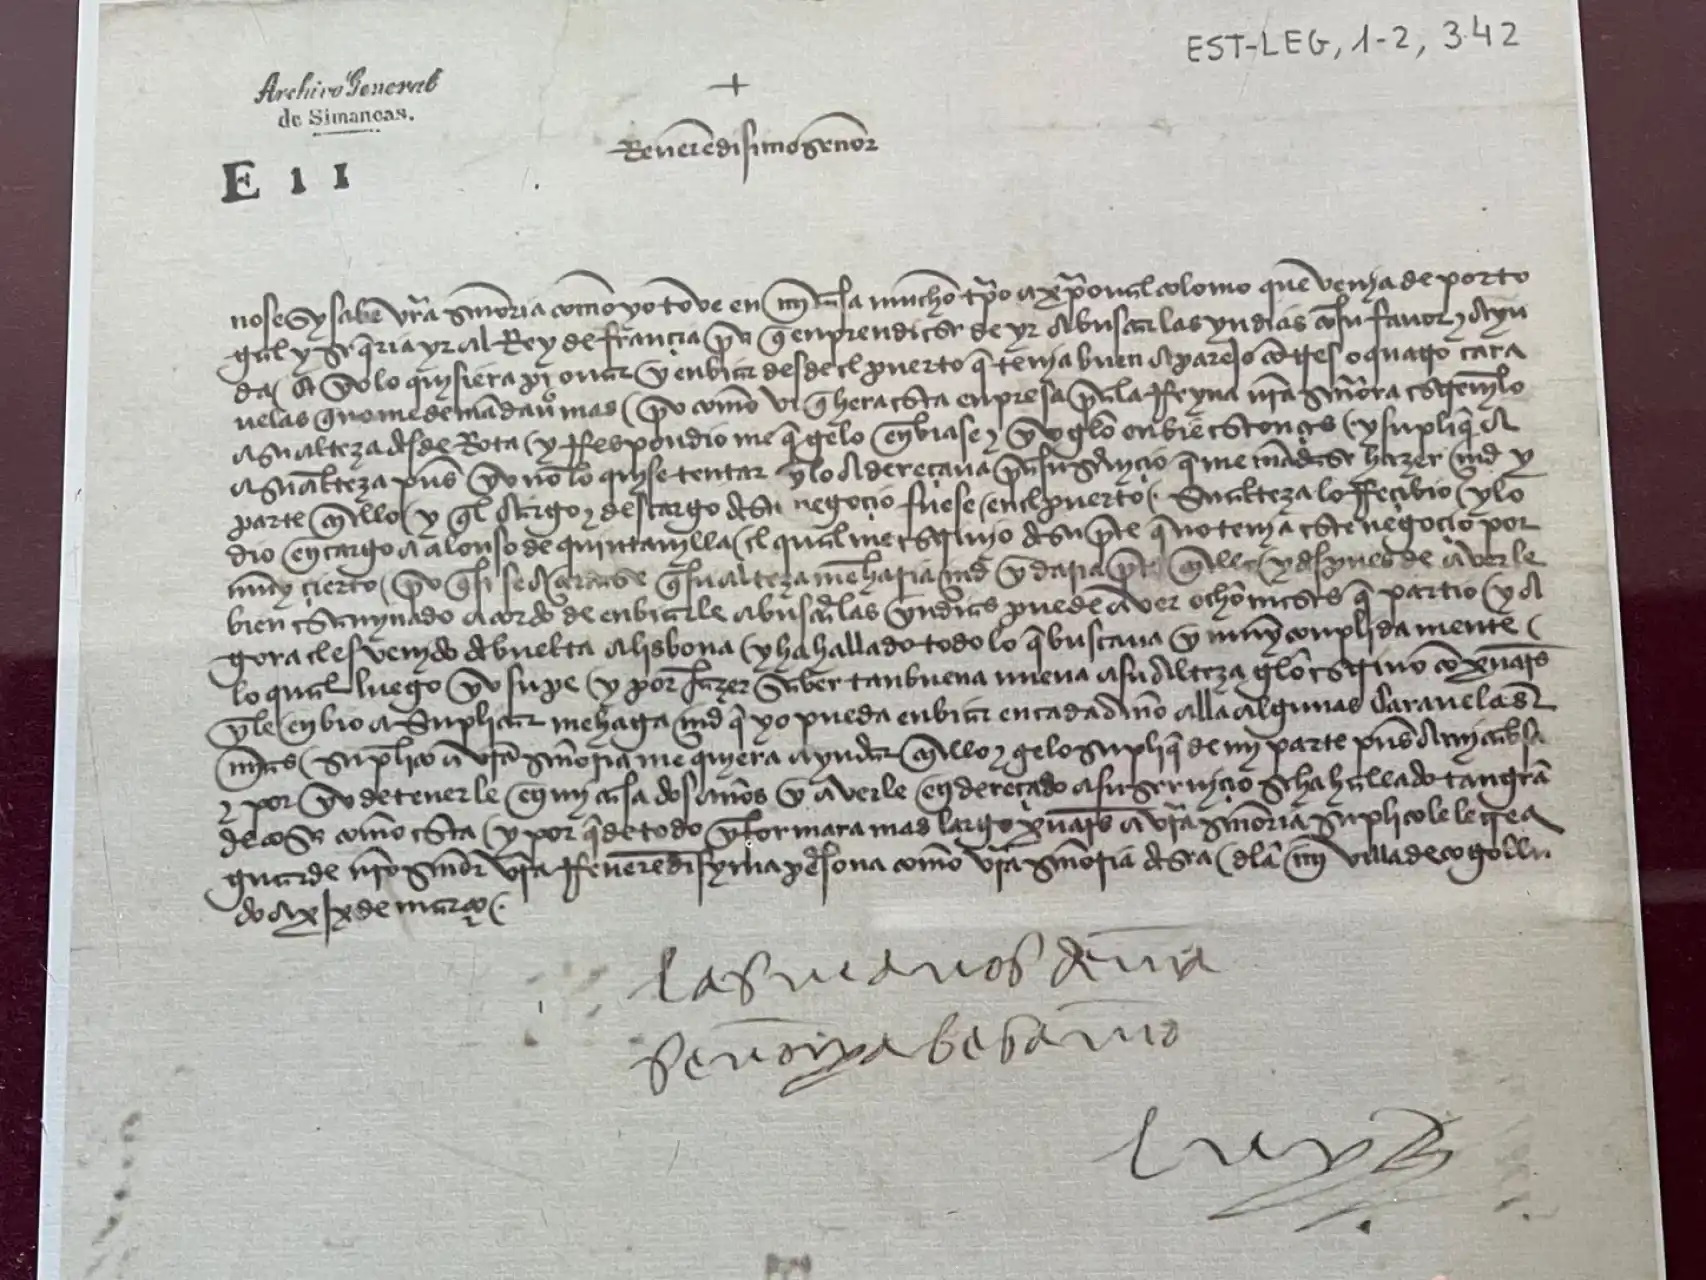 EST-LEG, 1-2, 342
Archivo General
de Simancas.
E 1 1
+
Reverẽdisimo señor
no se sy sabe vr̃a señoria como yo tove en my casa mucho tp̃o a xp̃oual colomo que venja de porto
gal y se q̃ria yr al Rey de francia p̃a q̃ enprendiese de yr a buscar las yndias cõ su fauor y ayu
da / e yo lo quisiera prouar y enbiar desde el puerto q̃ tenja buen aparejo cõ tres o quatro cara
uelas q̃ no me demãdaua mas / p̃o como vi q̃ hera esta enpresa p̃a la Reyna nr̃a señora escreuilo
a su alteza desde Rota / y Respondio me q̃ gelo enbiase y yo gelo enbie estonçes / y supliq̃ a
su alteza pues yo no lo quise tentar y lo adereçaua p̃a su seruiçio q̃ me mãdase hazer md̃ y
parte en ello / y q̃ el cargo y descargo de su negoçio fuese en el puerto / Su alteza lo Reçibio / y lo
dio en cargo a alonso de quintanylla / el qual me escriuio de su p̃te q̃ no tenja este negoçio por
muy çierto / p̃o q̃ si se açertase q̃ su alteza me haria md̃ y daria p̃te en ello / y despues de averle
bien esamynado acordo de enbiarle a buscar las yndias puede aver ocho meses q̃ partio / y a
gora el es venydo de buelta a lisbona / y ha hallado todo lo q̃ buscaua y muy conplidamente /
lo qual luego yo supe / y por fazer saber tan buena nueua a su alteza gelo escriuo cõ xuares
y le enbio a suplicar me haga md̃ q̃ yo pueda enbiar en cada año alla algunas carauelas
mias / suplico a vr̃a señoria me quiera ayudar en ello y gelo supliq̃ de my parte pues a my cabsa
y por yo detenerle en my casa dos años y averle endereçado a su seruiçio se ha hallado tan grã
de cosa como esta / y por q̃ de todo ynformara mas largo xuares a vr̃a señoria suplicole le crea
guarde nr̃o señor vr̃a Reuerẽdisyma persona como vr̃a señoria desea / de la my villa de cogollu
do a xjx de março /
las manos de vr̃a
señoria besamos
luys